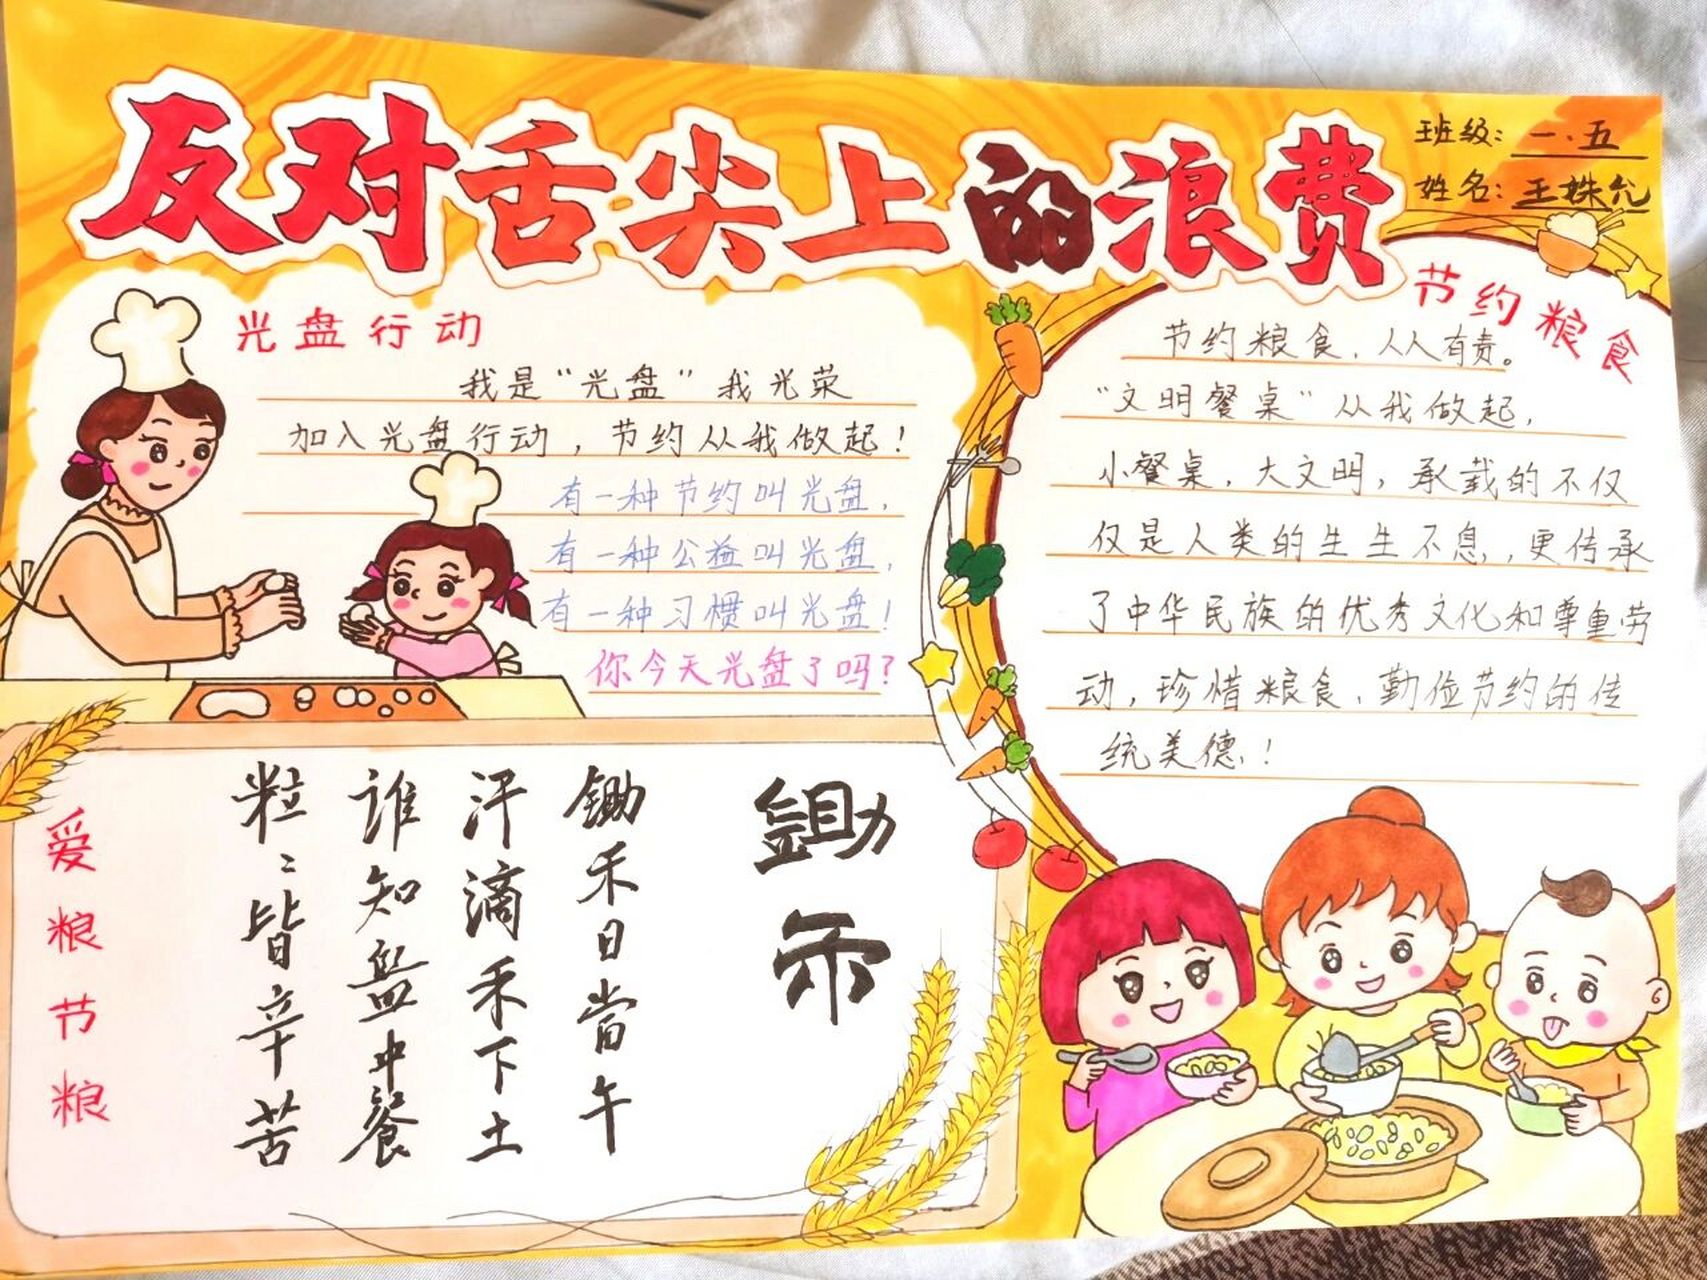 反对舌尖上的浪费
班级：一.五
姓名：王姝允
光盘行动
我是“光盘”我光荣
加入光盘行动，节约从我做起！
有一种节约叫光盘，
有一种公益叫光盘，
有一种习惯叫光盘！
你今天光盘了吗？
节约粮食
节约粮食，人人有责。
“文明餐桌”从我做起，
小餐桌，大文明，承载的不仅
仅是人类的生生不息，，更传承
了中华民族的优秀文化和尊重劳
动，珍惜粮食，勤俭节约的传
统美德！
鋤禾
鋤禾日當午
汗滴禾下土
谁知盘中餐
粒〻皆辛苦
爱粮节粮